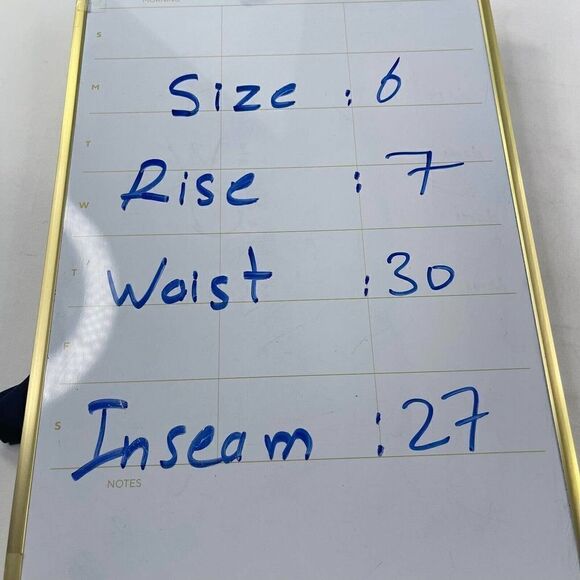 MORNING
S
M
Size : 6
T
Rise : 7
W
T
Waist : 30
F
S
Inseam : 27
NOTES